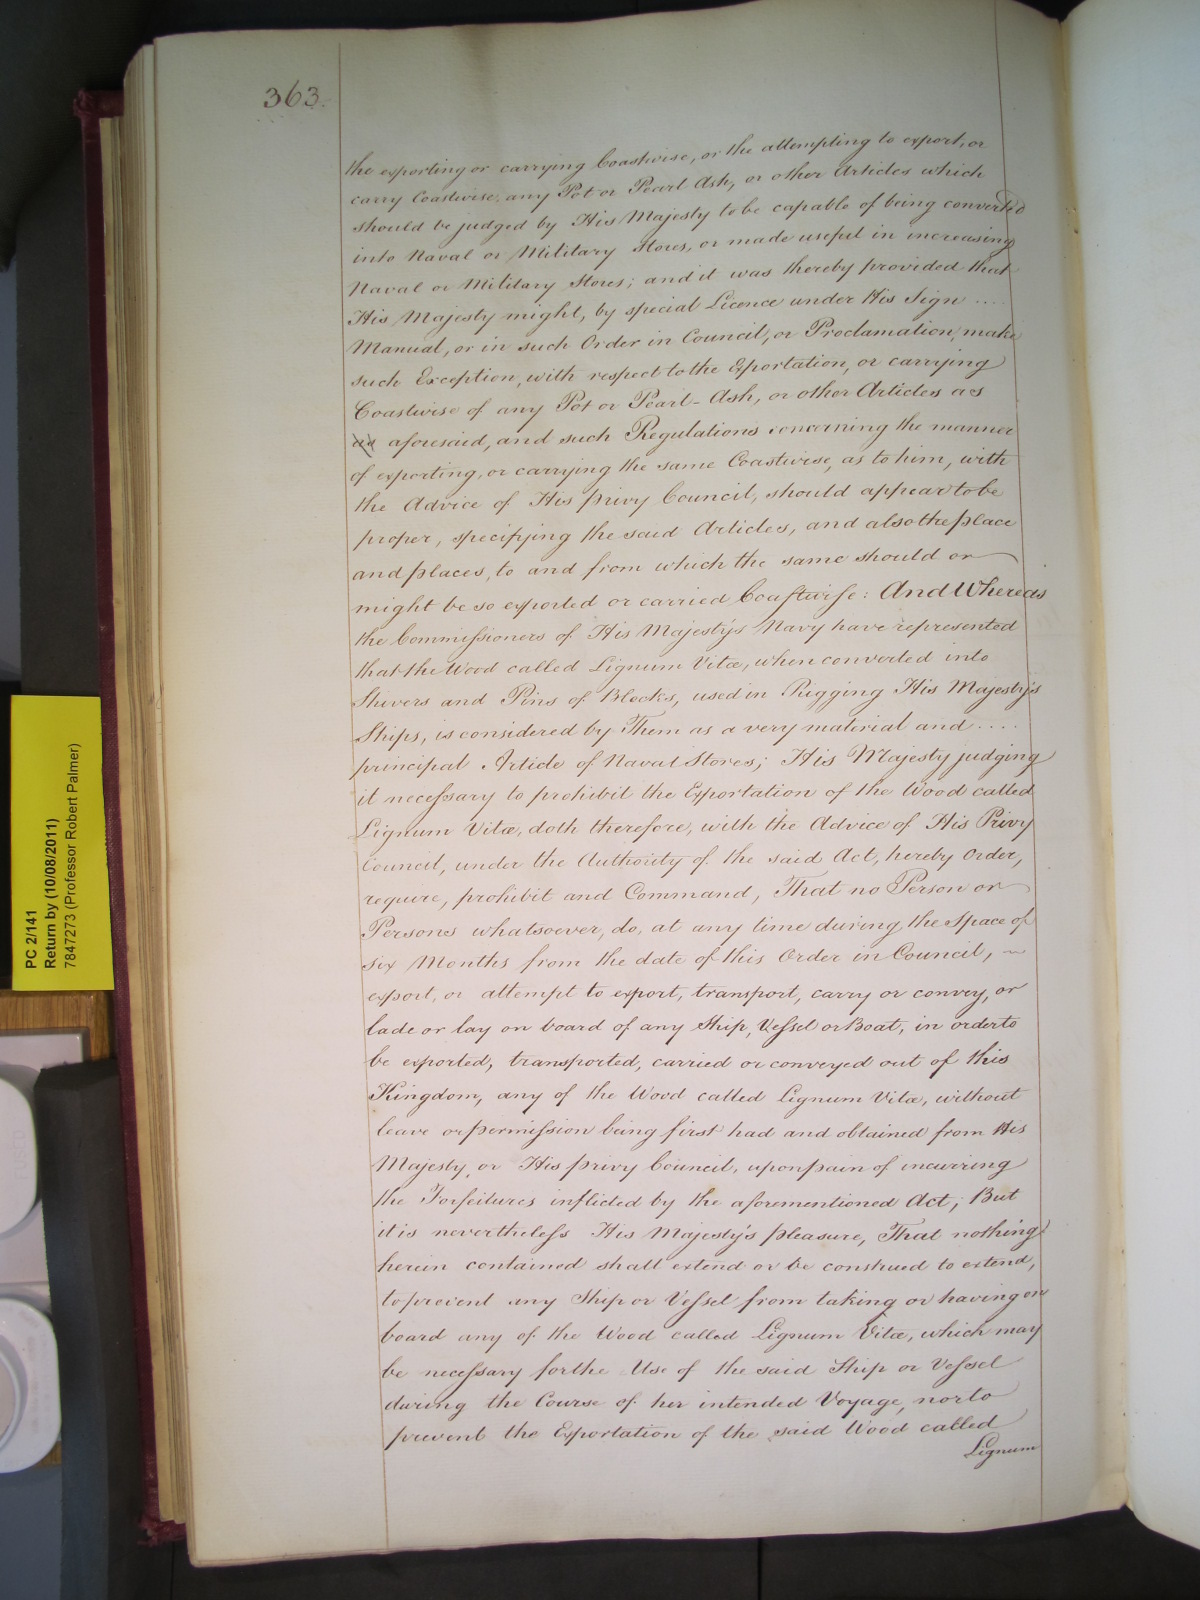 363.
the exporting or carrying Coastwise, or the attempting to export, or
carry Coastwise, any Pot or Pearl Ash, or other Articles which
should be judged by His Majesty to be capable of being converted
into Naval or Military Stores, or made useful in increasing
Naval or Military Stores; and it was thereby provided that
His Majesty might, by special Licence under His Sign ....
Manual, or in such Order in Council, or Proclamation, make
such Exception, with respect to the Exportation, or carrying
Coastwise of any Pot or Pearl-Ash, or other Articles as
aforesaid, and such Regulations concerning the manner
of exporting, or carrying the same Coastwise, as to him, with
the Advice of His privy Council, should appear to be
proper, specifying the said Articles, and also the place
and places, to and from which the same should or
might be so exported or carried Coastwise: And Whereas
the Commissioners of His Majesty's Navy have represented
that the Wood called Lignum Vitæ, when converted into
Shivers and Pins of Blocks, used in Rigging His Majesty's
Ships, is considered by Them as a very material and ....
principal Article of Naval Stores; His Majesty judging
it necessary to prohibit the Exportation of the Wood called
Lignum Vitæ, doth therefore, with the Advice of His Privy
Council, under the Authority of the said Act, hereby Order,
require, prohibit and Command, That no Person or
Persons whatsoever, do, at any time during the Space of
six Months from the date of this Order in Council, ~
export, or attempt to export, transport, carry or convey, or
lade or lay on board of any Ship, Vessel or Boat, in order to
be exported, transported, carried or conveyed out of this
Kingdom, any of the Wood called Lignum Vitæ, without
leave or permission being first had and obtained from His
Majesty, or His privy Council, upon pain of incurring
the Forfeitures inflicted by the aforementioned Act; But
it is nevertheless His Majesty's pleasure, That nothing
herein contained shall extend or be construed to extend,
to prevent any Ship or Vessel from taking or having on
board any of the Wood called Lignum Vitæ, which may
be necessary for the Use of the said Ship or Vessel
during the Course of her intended Voyage, nor to
prevent the Exportation of the said Wood called
Lignum
PC 2/141
Return by (10/08/2011)
7847273 (Professor Robert Palmer)